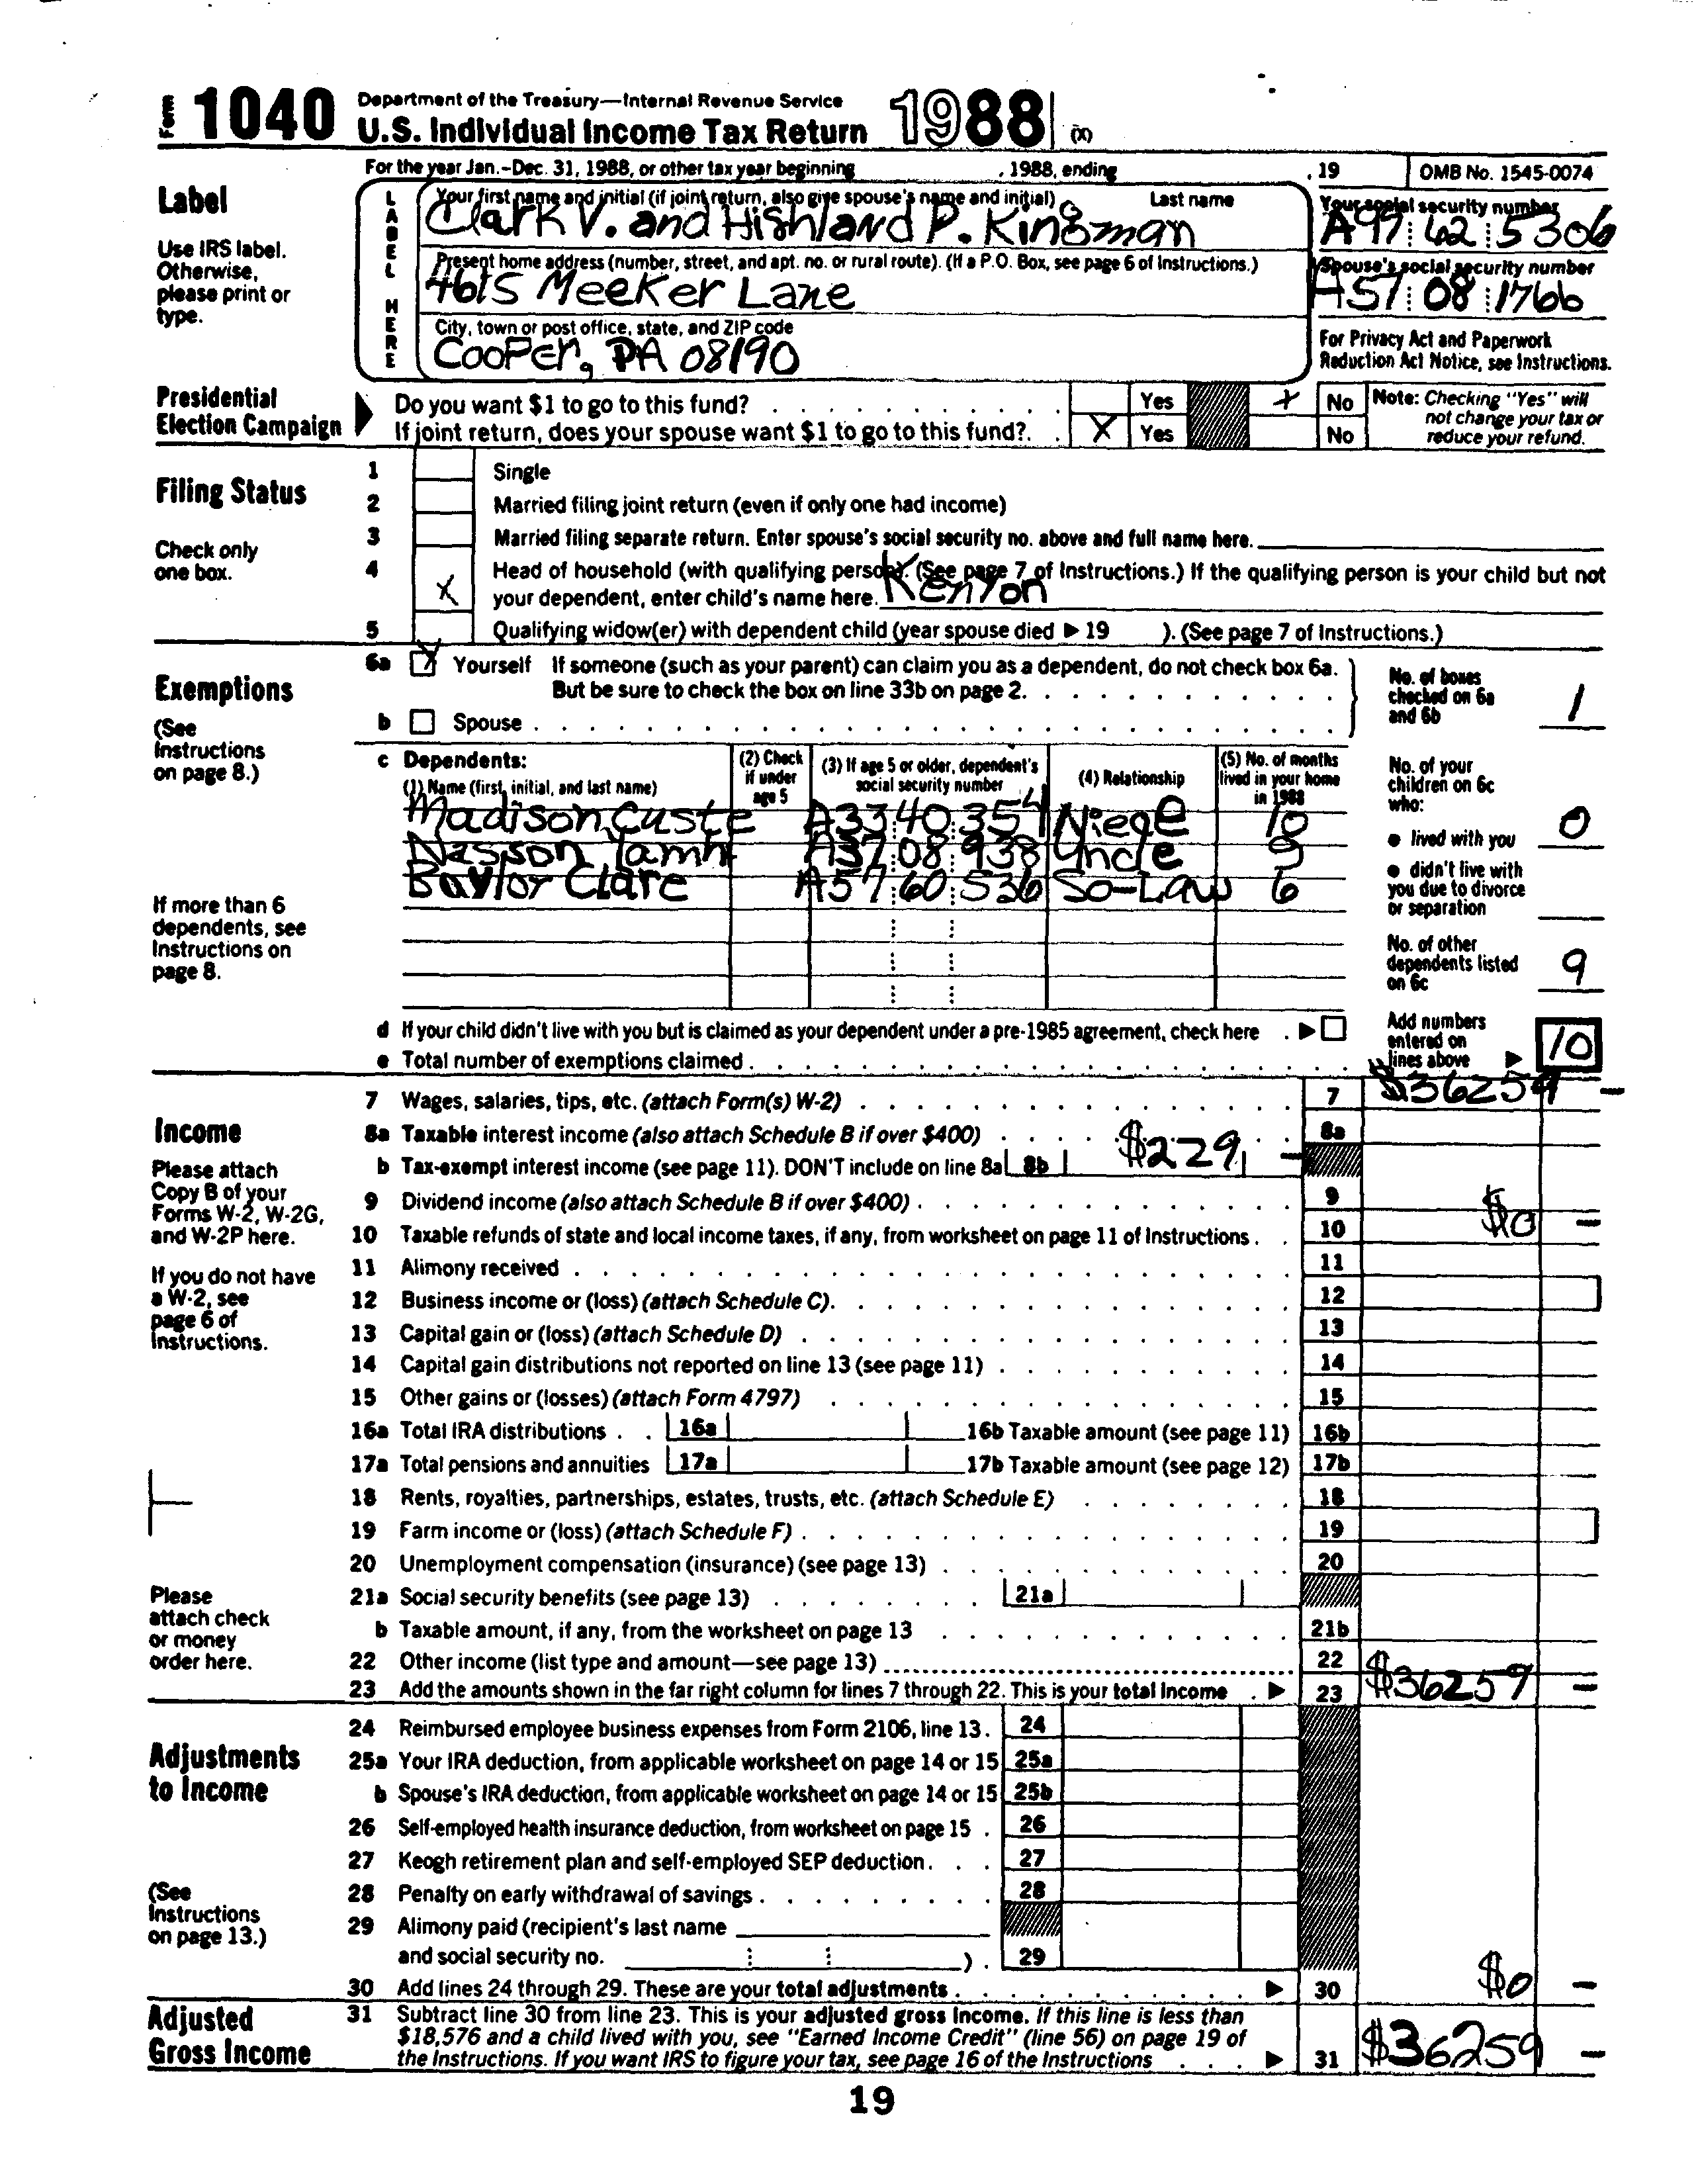 Form 1040 Department of the Treasury—Internal Revenue Service
U.S. Individual Income Tax Return 1988 (X)
For the year Jan.-Dec. 31, 1988, or other tax year beginning , 1988, ending , 19 OMB No. 1545-0074
Label
Use IRS label. Otherwise, please print or type.
LABEL HERE
Your first name and initial (if joint return, also give spouse's name and initial) Last name
Clark V. and Hishland P. Kingman
Your social security number
A97 62 5306
Present home address (number, street, and apt. no. or rural route). (If a P.O. Box, see page 6 of Instructions.)
4615 Meeker Lane
Spouse's social security number
A57 08 1766
City, town or post office, state, and ZIP code
Cooper, PA 08190
For Privacy Act and Paperwork Reduction Act Notice, see Instructions.
Presidential Election Campaign
Do you want $1 to go to this fund? Yes X No
If joint return, does your spouse want $1 to go to this fund? X Yes No
Note: Checking "Yes" will not change your tax or reduce your refund.
Filing Status
Check only one box.
1 Single
2 Married filing joint return (even if only one had income)
3 Married filing separate return. Enter spouse's social security no. above and full name here.
4 X Head of household (with qualifying person). (See page 7 of Instructions.) If the qualifying person is your child but not
your dependent, enter child's name here. Kenyon
5 Qualifying widow(er) with dependent child (year spouse died ▶ 19 ). (See page 7 of Instructions.)
Exemptions
(See Instructions on page 8.)
6a X Yourself If someone (such as your parent) can claim you as a dependent, do not check box 6a.
But be sure to check the box on line 33b on page 2.
b Spouse
No. of boxes checked on 6a and 6b 1
c Dependents:
(1) Name (first, initial, and last name)
(2) Check if under age 5
(3) If age 5 or older, dependent's social security number
(4) Relationship
(5) No. of months lived in your home in 1988
Madison Custe A33 40 354 Niege 10
Nasson Tamh A37 08 938 Uncle 9
Baylor Clare A57 60 536 So-Law 6
If more than 6 dependents, see Instructions on page 8.
No. of your children on 6c who:
● lived with you 0
● didn't live with you due to divorce or separation
No. of other dependents listed on 6c 9
d If your child didn't live with you but is claimed as your dependent under a pre-1985 agreement, check here ▶
e Total number of exemptions claimed
Add numbers entered on lines above ▶ 10
Income
Please attach Copy B of your Forms W-2, W-2G, and W-2P here.
If you do not have a W-2, see page 6 of Instructions.
Please attach check or money order here.
7 Wages, salaries, tips, etc. (attach Form(s) W-2) 7 $36259 –
8a Taxable interest income (also attach Schedule B if over $400) 8a
b Tax-exempt interest income (see page 11). DON'T include on line 8a 8b $229 –
9 Dividend income (also attach Schedule B if over $400) 9
10 Taxable refunds of state and local income taxes, if any, from worksheet on page 11 of Instructions. 10 $0 –
11 Alimony received 11
12 Business income or (loss) (attach Schedule C). 12
13 Capital gain or (loss) (attach Schedule D) 13
14 Capital gain distributions not reported on line 13 (see page 11) 14
15 Other gains or (losses) (attach Form 4797) 15
16a Total IRA distributions 16a 16b Taxable amount (see page 11) 16b
17a Total pensions and annuities 17a 17b Taxable amount (see page 12) 17b
18 Rents, royalties, partnerships, estates, trusts, etc. (attach Schedule E) 18
19 Farm income or (loss) (attach Schedule F) 19
20 Unemployment compensation (insurance) (see page 13) 20
21a Social security benefits (see page 13) 21a
b Taxable amount, if any, from the worksheet on page 13 21b
22 Other income (list type and amount—see page 13) 22
23 Add the amounts shown in the far right column for lines 7 through 22. This is your total income ▶ 23 $36259 –
Adjustments to Income
(See Instructions on page 13.)
24 Reimbursed employee business expenses from Form 2106, line 13. 24
25a Your IRA deduction, from applicable worksheet on page 14 or 15 25a
b Spouse's IRA deduction, from applicable worksheet on page 14 or 15 25b
26 Self-employed health insurance deduction, from worksheet on page 15 26
27 Keogh retirement plan and self-employed SEP deduction 27
28 Penalty on early withdrawal of savings 28
29 Alimony paid (recipient's last name
and social security no. ) 29
30 Add lines 24 through 29. These are your total adjustments ▶ 30 $0 –
Adjusted Gross Income
31 Subtract line 30 from line 23. This is your adjusted gross income. If this line is less than
$18,576 and a child lived with you, see "Earned Income Credit" (line 56) on page 19 of
the Instructions. If you want IRS to figure your tax, see page 16 of the Instructions ▶ 31 $36259 –
19